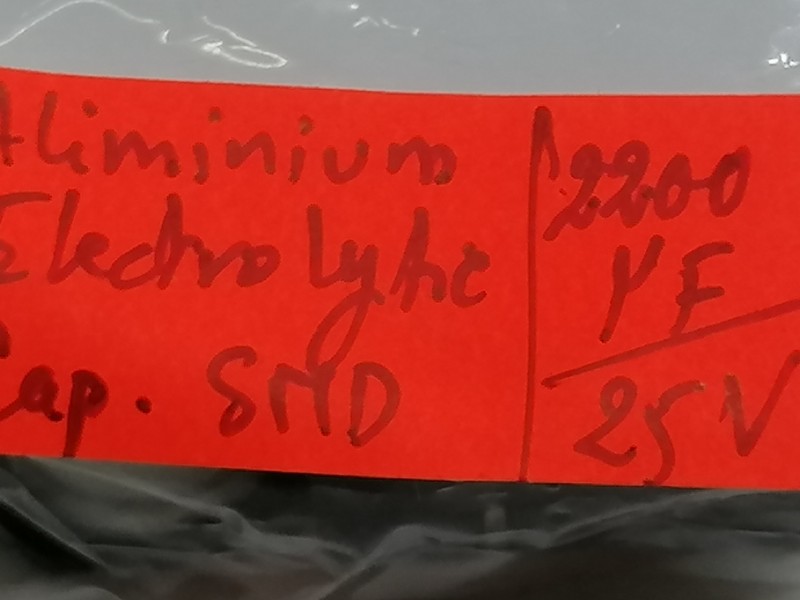 Aliminium
Electrolytic
Cap. SMD
2200
µF
25V